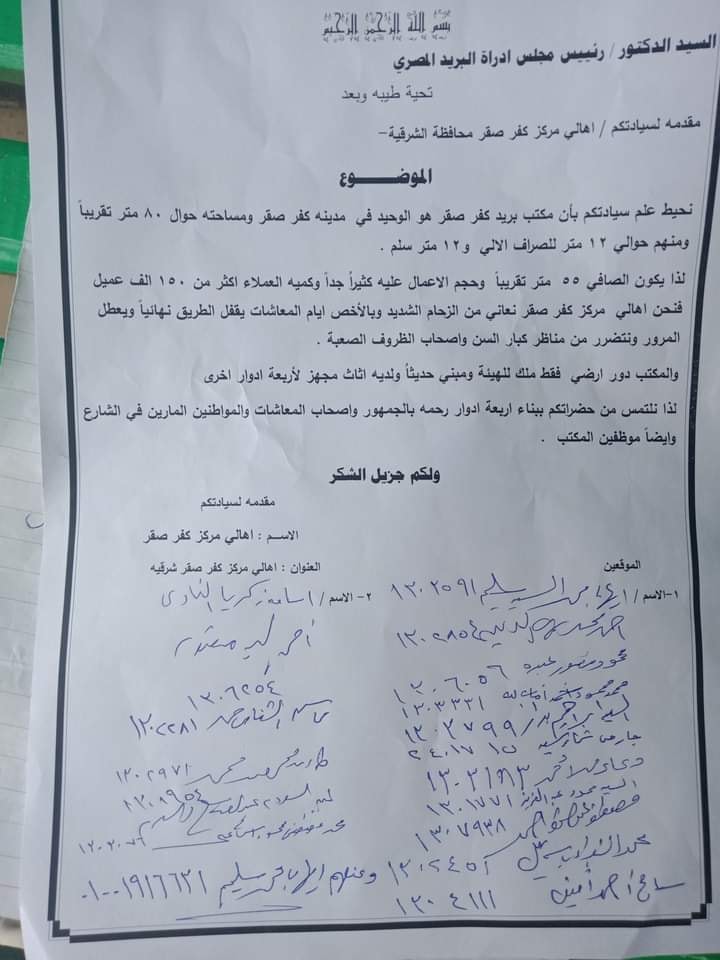 بسم الله الرحمن الرحيم
السيد الدكتور / رئييس مجلس ادراة البريد المصري
تحية طيبه وبعد
مقدمه لسيادتكم / اهالي مركز كفر صقر محافظة الشرقية-
الموضـــــــوع
نحيط علم سيادتكم بأن مكتب بريد كفر صقر هو الوحيد في مدينه كفر صقر ومساحته حوال ٨٠ متر تقريباً
ومنهم حوالي ١٢ متر للصراف الالي و١٢ متر سلم .
لذا يكون الصافي ٥٥ متر تقريباً وحجم الاعمال عليه كثيراً جداً وكميه العملاء اكثر من ١٥٠ الف عميل
فنحن اهالي مركز كفر صقر نعاني من الزحام الشديد وبالأخص ايام المعاشات يقفل الطريق نهائياً ويعطل
المرور ونتضرر من مناظر كبار السن واصحاب الظروف الصعبة .
والمكتب دور ارضي فقط ملك للهيئة ومبني حديثاً ولديه اثاث مجهز لأربعة ادوار اخرى
لذا نلتمس من حضراتكم ببناء اربعة ادوار رحمه بالجمهور واصحاب المعاشات والمواطنين المارين في الشارع
وايضاً موظفين المكتب .
ولكم جزيل الشكر
مقدمه لسيادتكم
الاســم : اهالي مركز كفر صقر
العنوان : اهالي مركز كفر صقر شرقيه
الموقعين
١-الاسم / السيد سليم ١٣٠٢٥٩١
٢- الاسم / اسامه زكريا النادى
احمد ١٣٠٢٨٥٤
محمود منصور عبده ١٢٠٦٠٥٦
١٣٠٦٢٥٤
محمد محمود ١٣٠٣٣٣١
١٣٠٢٢٨١
السيد ١٣٠٢٧٩٩
٢٤٠١٧١٥
١٣٠٢٩٧١
دعاء صلاح ١٣٠٣١٨٣
السيد محمود عبد العزيز ١٣٠١٧٧١
عبد السلام
١٣٠٧٩٣٨
محمد ١٢٠٢٠٧٦
محمد ١٣٠٢٤٥٢
وعنهم ايهاب سليم ٠١٠٠١٩١٦٦٢١
سامح احمد امين ١٣٠٤١١١